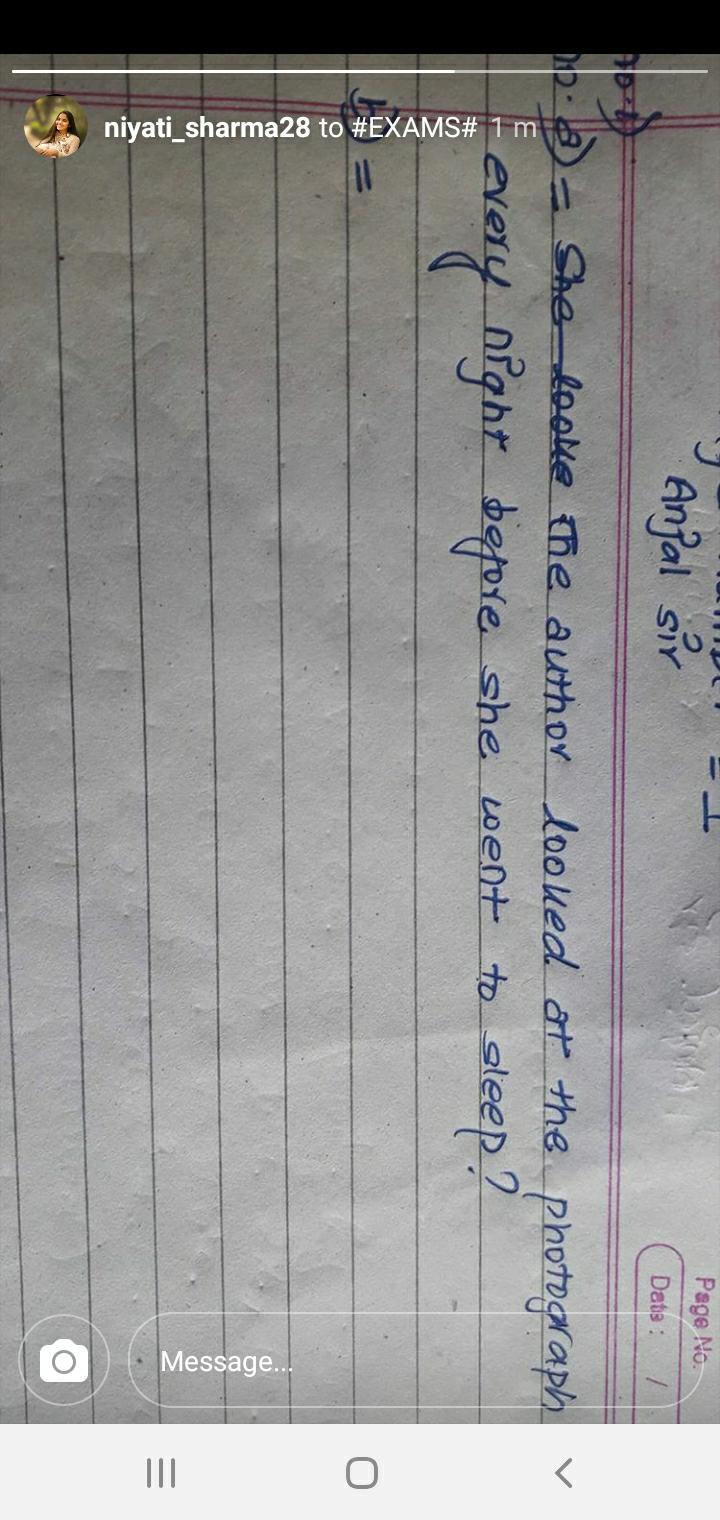 niyati_sharma28 to #EXAMS# 1 m
Page No.
Date: /
= 1
Anjal sir
a) = She looke The author looked at the photograph
every night before she went to sleep?
b) =
Message...